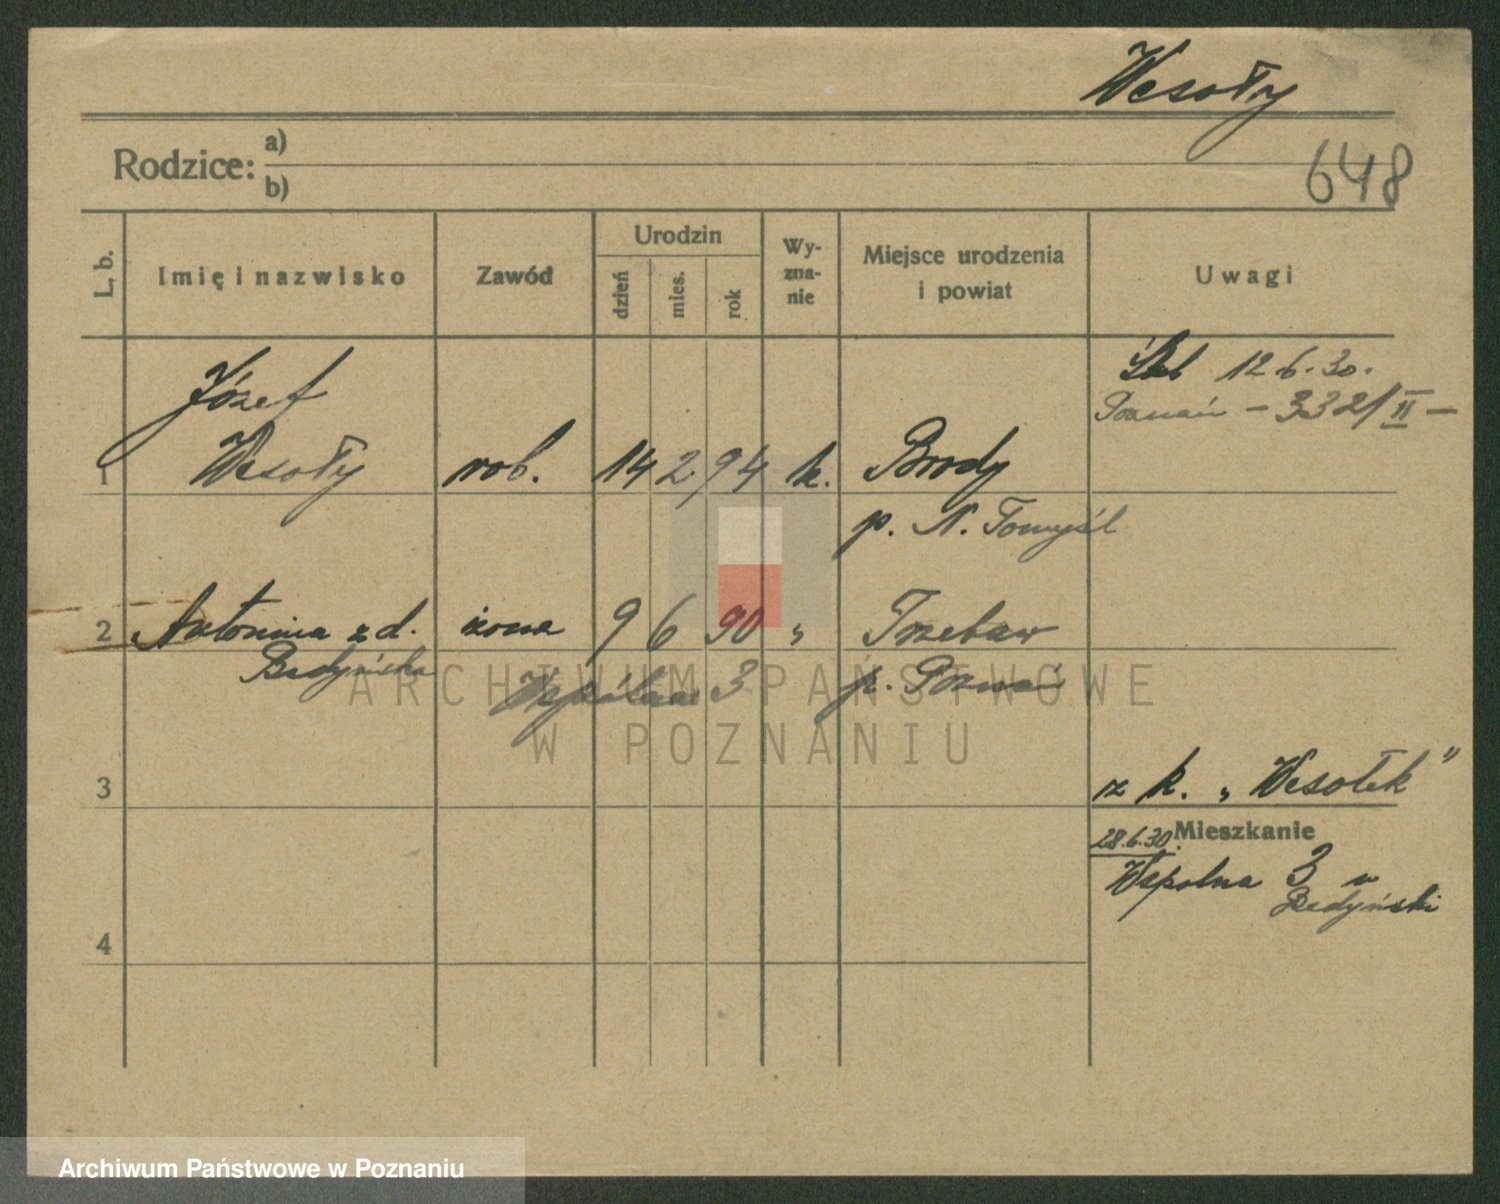 Wesoły
648
Rodzice: a)
b)
L. b.
Imię i nazwisko
Zawód
Urodzin
dzień
mies.
rok
Wy-
zna-
nie
Miejsce urodzenia
i powiat
Uwagi
Ślub 12.6.30.
Poznań – 332/II –
Józef
1 Wesoły rob. 14 2 94 k. Brody
p. N. Tomyśl
2 Antonina z d. żona 9 6 90 „ Trzebaw
Bedyńska Wspólna 3 p. Poznań
ARCHIWUM PAŃSTWOWE
W POZNANIU
3
z k. „Wesołek"
28.6.30. Mieszkanie
Wspolna 3 u
Bedyński
4
Archiwum Państwowe w Poznaniu